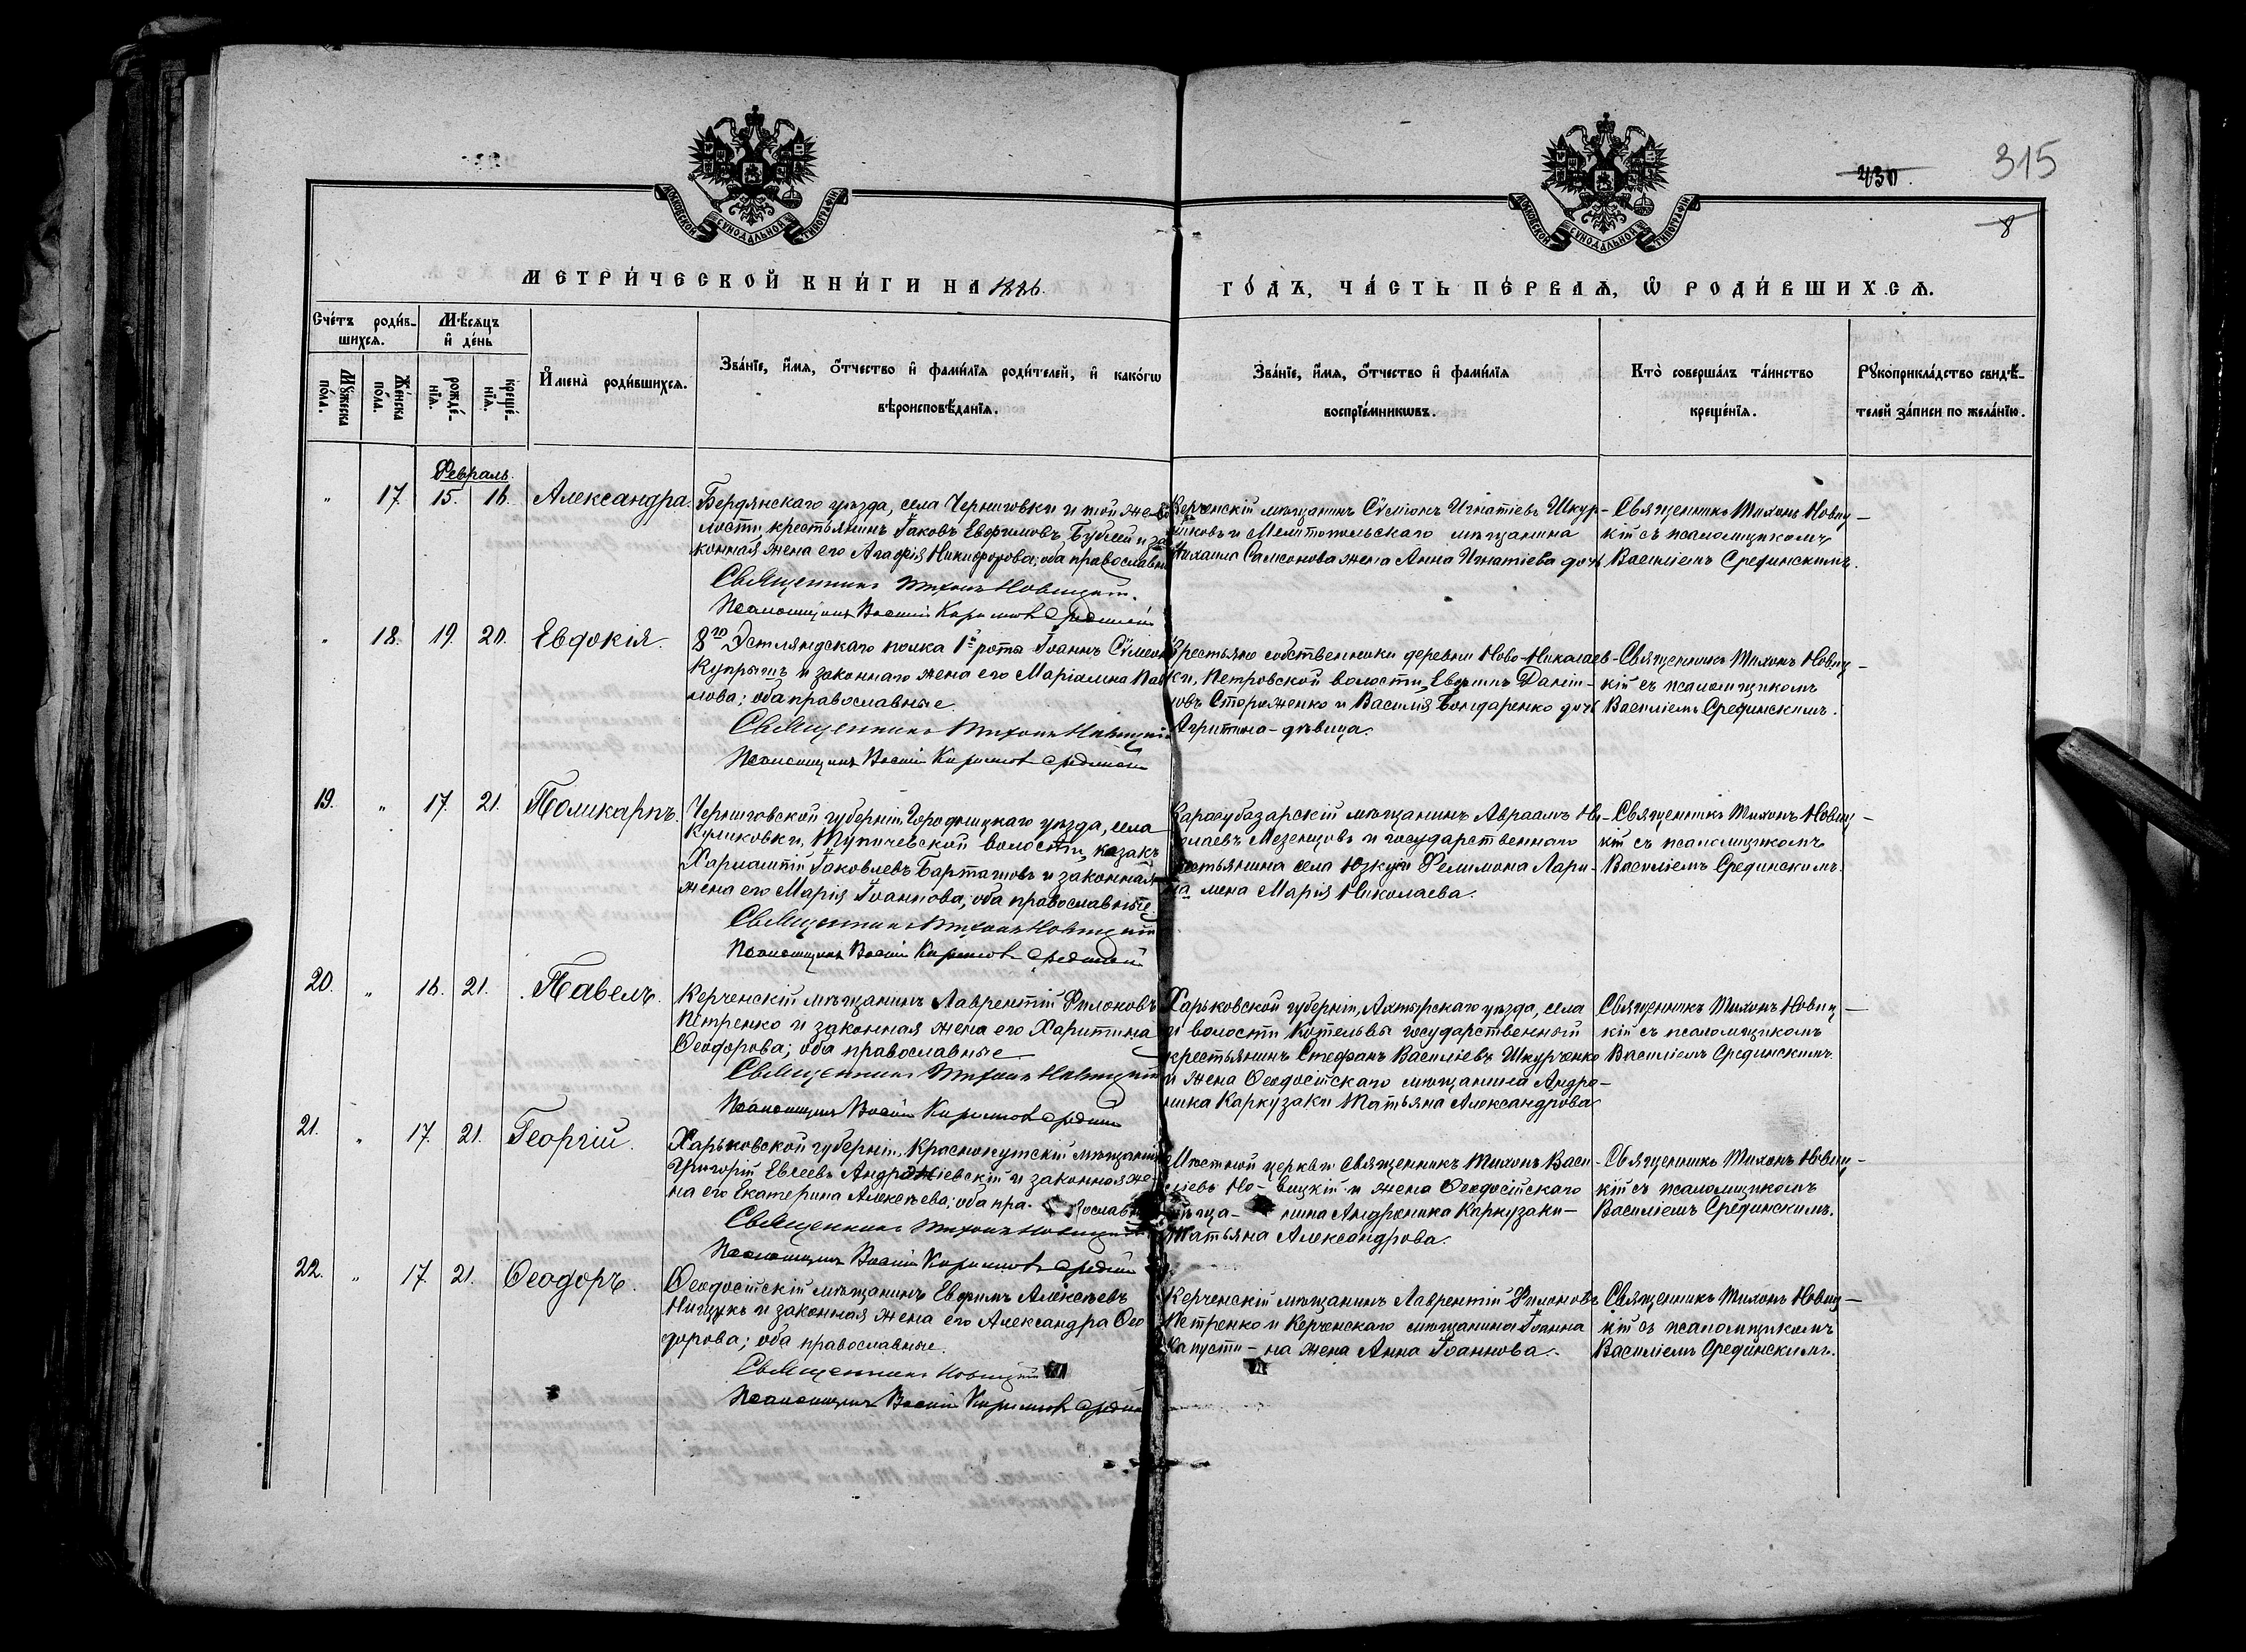 315
430.
8
МОСКОВСКОЙ СѴНОДАЛЬНОЙ ТИПОГРАФІИ
МОСКОВСКОЙ СѴНОДАЛЬНОЙ ТИПОГРАФІИ
МЕТРИ́ЧЕСКОЙ КНИ́ГИ НА 1886.
ГО́ДЪ, ЧА́СТЬ ПЕ́РВАѦ, Ѡ҆ РОДИ́ВШИХСѦ.
Сче́тъ роди́в-
шихсѧ.
Мꙋ́жеска по́ла.
Же́нска по́ла.
Мѣ́сѧцъ
и҆ де́нь
рожде́-нїѧ.
креще́-нїѧ.
И҆мена̀ роди́вшихсѧ.
Зва́нїе, и҆́мѧ, ѻ҆́тчество и҆ фами́лїѧ роди́телей, и҆ како́гѡ
вѣроисповѣ́данїѧ.
Зва́нїе, и҆́мѧ, ѻ҆́тчество и҆ фами́лїѧ
воспрїе́мникѡвъ.
Кто̀ соверша́лъ та́инство
креще́нїѧ.
Рꙋкоприкла́дство свидѣ́-
телей за́писи по жела́нїю.
Февраль.
" 17. 15. 16. Александра.
Бердянскаго уѣзда, села Черниговки и той же во-
лости, крестьянинъ Іаковъ Евфимовъ Бублей и за-
конная жена его Агафія Никифорова; оба православн
Священникъ Тихонъ Новицкій.
Псаломщикъ Василій Срединскій
Керченскій мѣщанинъ Сѵмеонъ Игнатіевъ Шкур-
никовъ и Мелитопольскаго мѣщанина
Михаила Самсонова жена Анна Игнатіева
Священникъ Тихонъ Новиц-
кій съ псаломщикомъ
Василіемъ Срединскимъ.
" 18. 19. 20. Евдокія.
8го Эстляндскаго полка 1й рота Іоаннъ Сѵмеон
и законнаго жена его Маріамна Пав
лова; оба православные.
Священникъ Тихонъ Новицкій
Псаломщикъ Василій Срединскій
Крестьяне собственники деревни Ново-Николаев-
ки, Петровской волости, Евфимъ Даніи-
ловъ Стороженко и Василія Бондаренко доч
Агрипина-дѣвица.
Священникъ Тихонъ Новиц-
кій съ псаломщикомъ
Василіемъ Срединскимъ.
19. " 17. 21. Поликарпъ.
Черниговской губерніи, Городницкаго уѣзда, села
Куликовки, Тупичевской волости, казакъ
Харлампій Іаковлевъ Барташовъ и законная
жена его Марія Іоаннова; оба православные.
Священникъ Тихонъ Новицкій
Псаломщикъ Василій Срединскій
Карасубазарскій мѣщанинъ Авраамъ Ни-
колаевъ Мезенцовъ и государственнаго
крестьянина села Юзкуи Филимона Лари-
на жена Марія Николаева.
Священникъ Тихонъ Новиц-
кій съ псаломщикомъ
Василіемъ Срединскимъ.
20. " 16. 21. Павелъ.
Керченскій мѣщанинъ Лаврентій Филоновъ
Петренко и законная жена его Харитина
Ѳеодорова; оба православные
Священникъ Тихонъ Новицкій
Псаломщикъ Василій Срединскій
Харьковской губерніи, Ахтырскаго уѣзда, села
и волости Котельвы государственный
крестьянинъ Стефанъ Василіевъ Шкурченко
и жена Ѳеодосійскаго мѣщанина Андро-
ника Каркузаки Татьяна Александрова
Священникъ Тихонъ Новиц-
кій съ псаломщикомъ
Василіемъ Срединскимъ.
21. " 17. 21. Георгій.
Харьковской губерніи, Краснокутскій мѣщанинъ
Григорій Евсеевъ Андрожіевскій и законная же-
на его Екатерина Алексѣева; оба пра-вославн
Священникъ Тихонъ Новицкій
Псаломщикъ Василій Срединскій
Мѣстной церкви священникъ Тихонъ Васи-
ліевъ Но-вицкій и жена Ѳеодосійскаго
мѣща-нина Андроника Каркузаки-
Татьяна Александрова.
Священникъ Тихонъ Новиц-
кій съ псаломщикомъ
Василіемъ Срединскимъ.
22. " 17. 21. Ѳеодоръ.
Ѳеодосійскій мѣщанинъ Евфимъ Алексѣевъ
Нищукъ и законная жена его Александра Ѳео
дорова; оба православные.
Священникъ Новицкій
Псаломщикъ Василій
Керченскій мѣщанинъ Лаврентій Филоновъ
Петренко и Керченскаго мѣщанина Іоанна
Капусти-на жена Анна Іоаннова.
Священникъ Тихонъ Новиц-
кій съ псаломщикомъ
Василіемъ Срединскимъ.